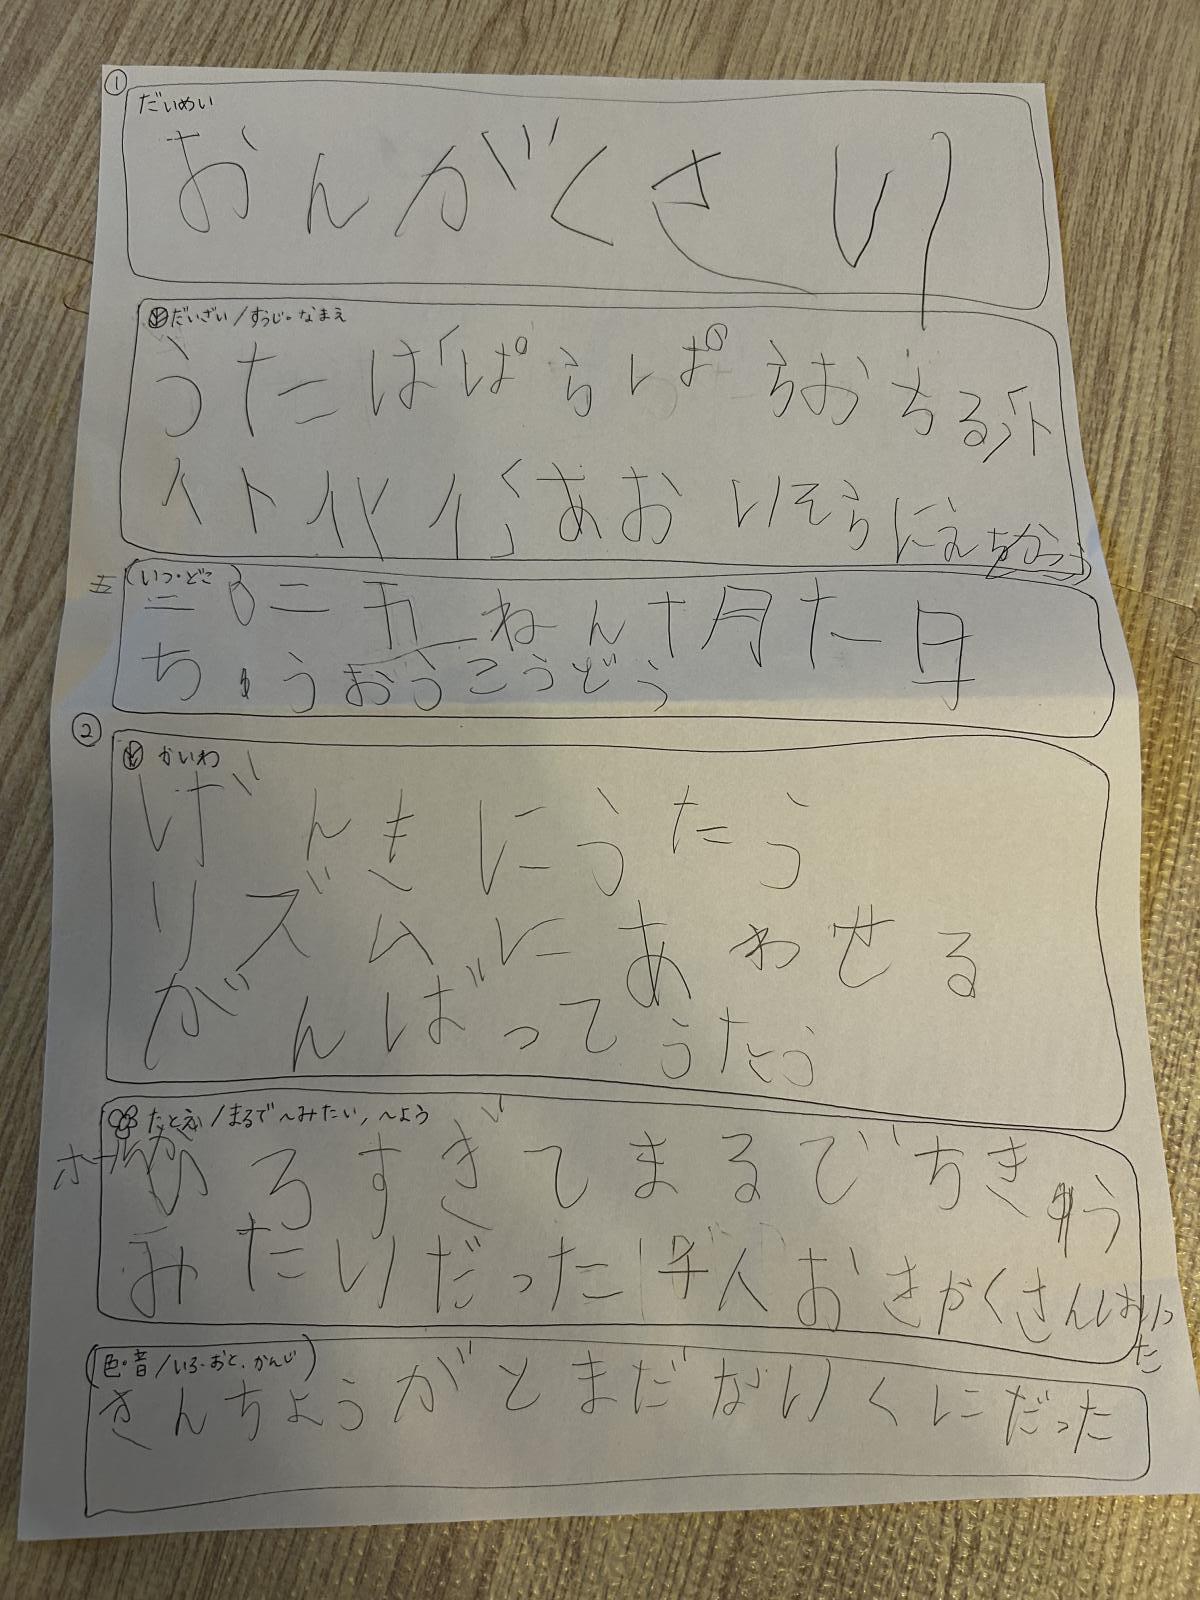 ①
だいめい
おんがくさい
だいざい/すうじ・なまえ
うたは「ぱらぱらおちる」ト
イトイイ」「あおいそらにえ
(いつ・どこ)
五
二〇二五ねん十月
ちゅうおうこうどう
②
かいわ
げんきにうたう
リズムにあわせる
がんばってうたう
たとえ/まるで〜みたい,〜よう
ひろすぎてまるでちきゅう
みたいだった
人おきゃくさんはいっ
た
(色・音/いろ・おと、かんじ)
きんちょうがとまだないくにだった